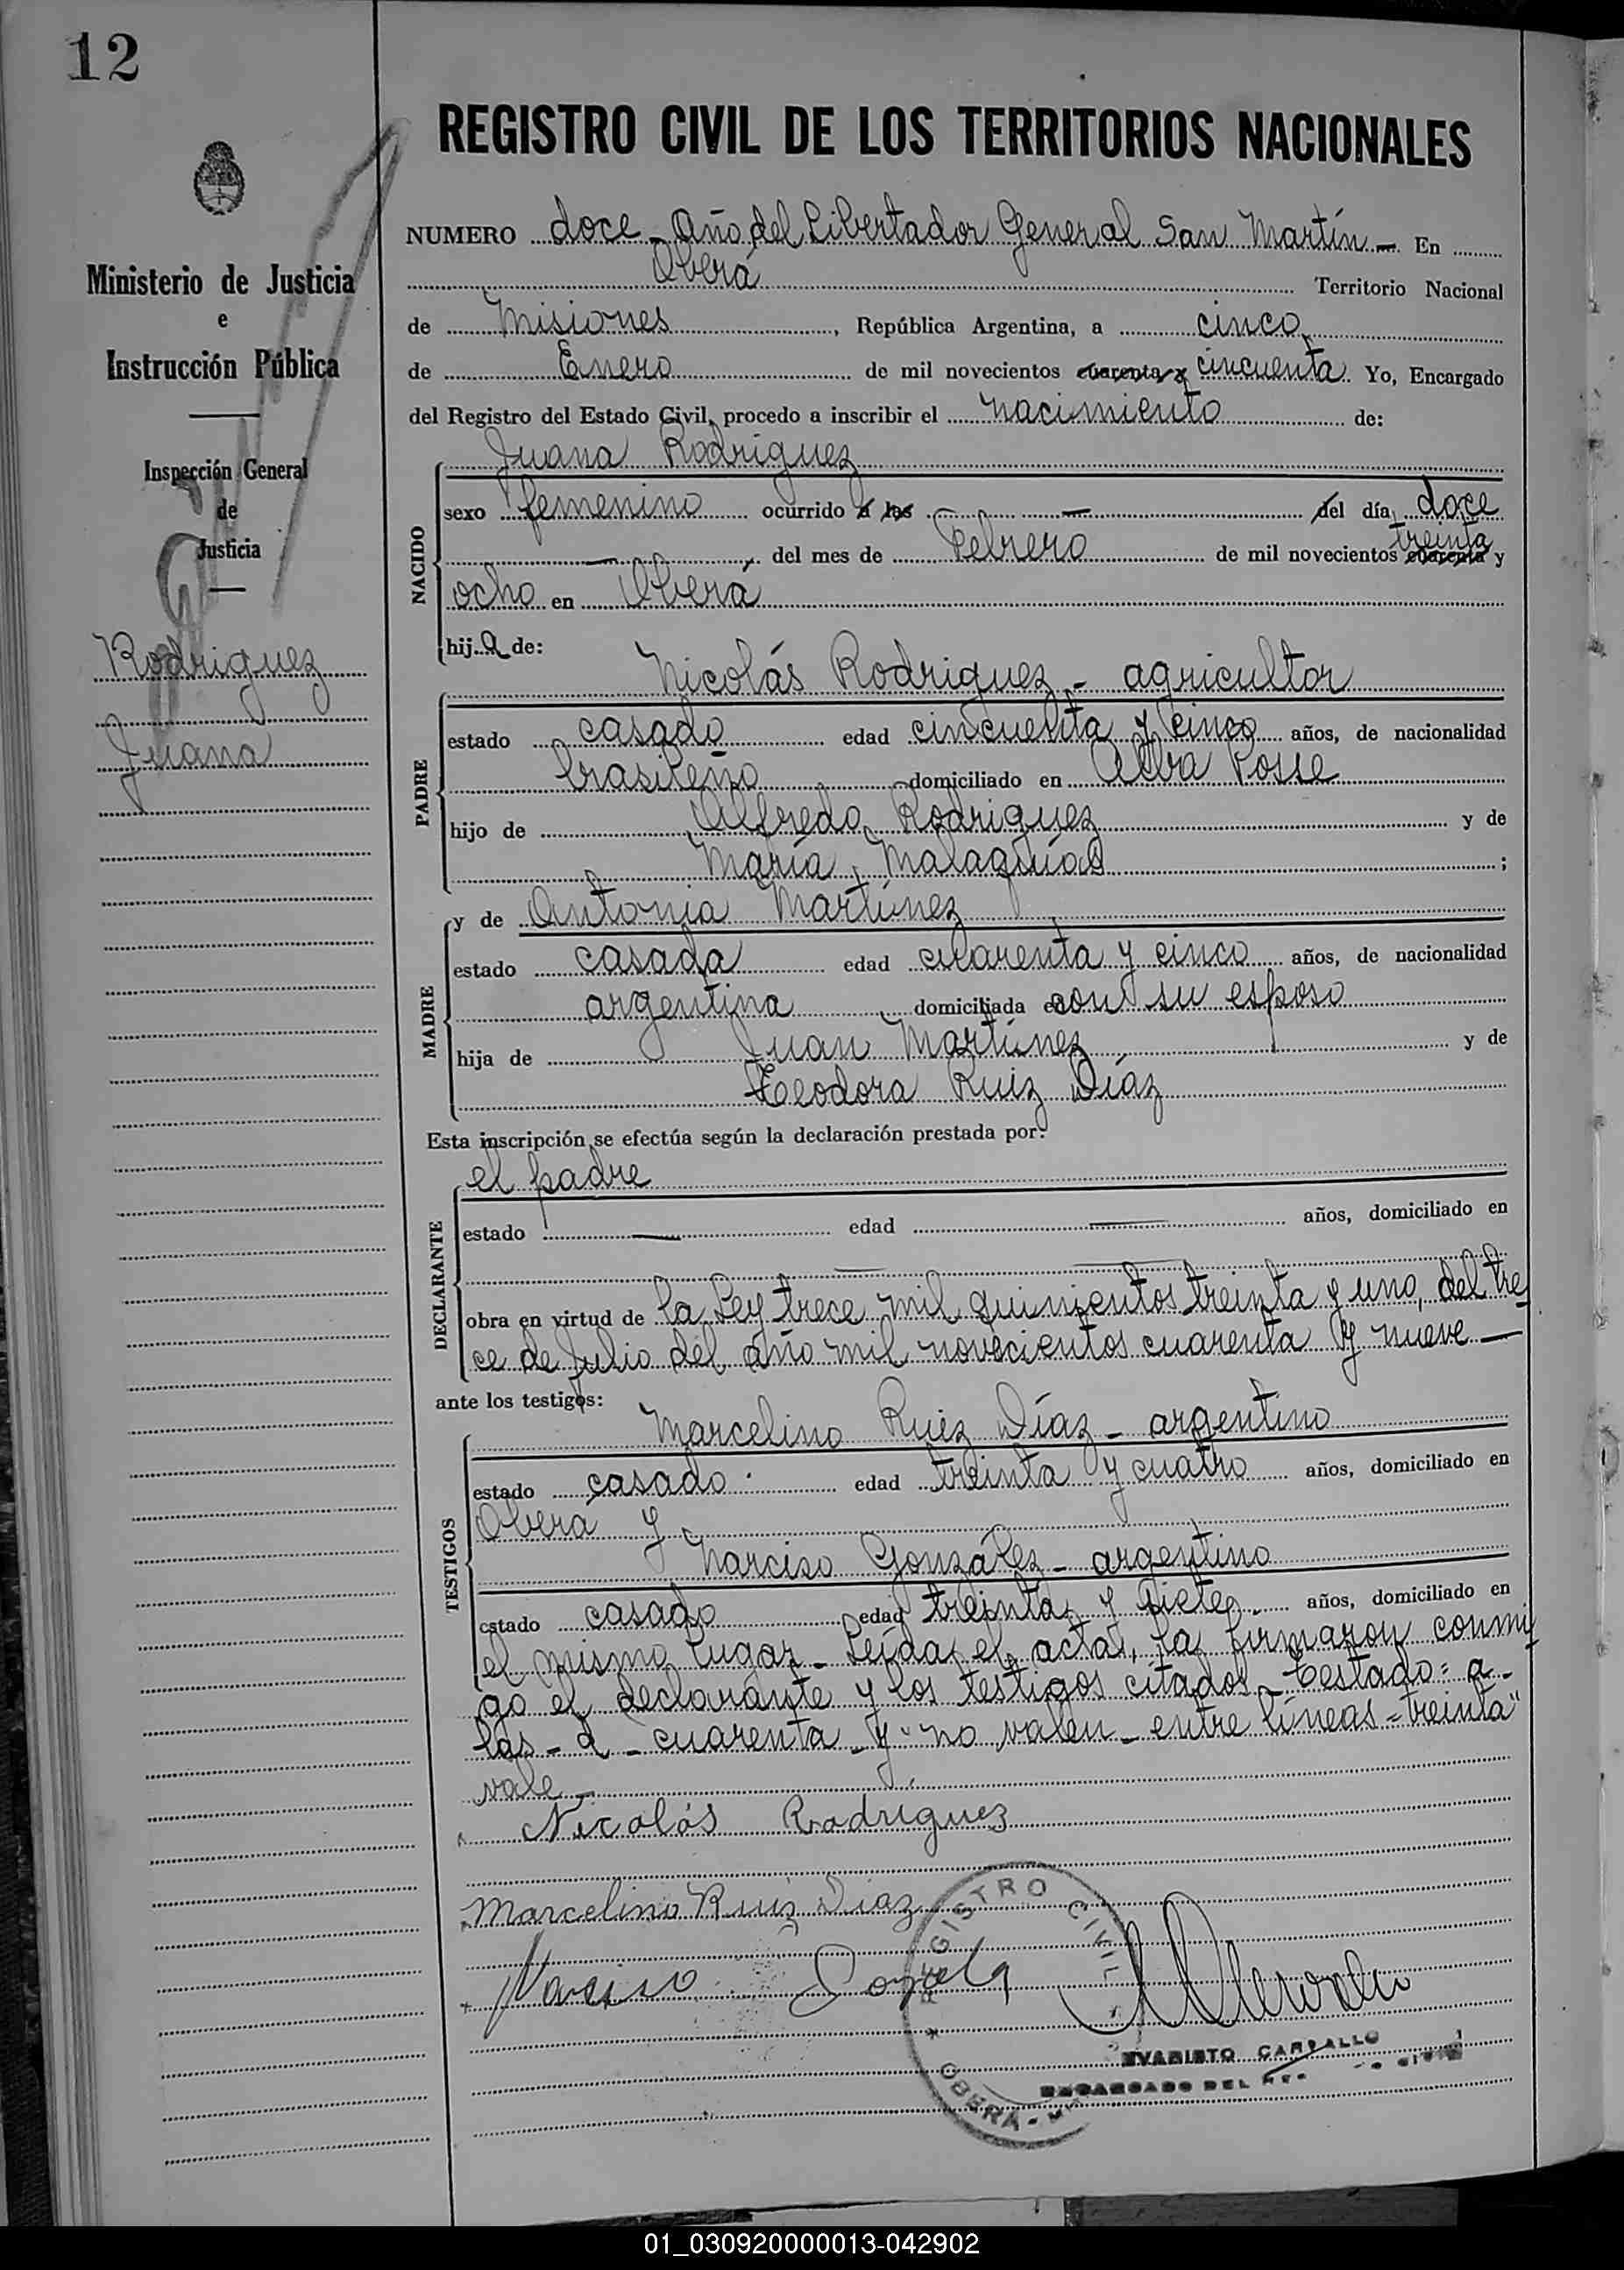 12
REGISTRO CIVIL DE LOS TERRITORIOS NACIONALES
Ministerio de Justicia
e
Instrucción Pública
Inspección General
de
Justicia
Rodriguez
Juana
NUMERO doce - Año del Libertador General San Martín - En
Oberá Territorio Nacional
de Misiones, República Argentina, a cinco
de Enero de mil novecientos cuarenta y cincuenta Yo, Encargado
del Registro del Estado Civil, procedo a inscribir el nacimiento de:
Juana Rodriguez
NACIDO
sexo femenino ocurrido a las — del día doce
— del mes de Febrero de mil novecientos cuarenta treinta y
ocho en Oberá
hija de:
PADRE
Nicolás Rodriguez - agricultor
estado casado edad cincuenta y cinco años, de nacionalidad
brasileño domiciliado en Alba Posse
hijo de Alfredo Rodriguez y de
María Malaquías ;
MADRE
y de Antonia Martínez
estado casada edad cuarenta y cinco años, de nacionalidad
argentina domiciliada con su esposo
hija de Juan Martínez y de
Teodora Ruiz Díaz
Esta inscripción se efectúa según la declaración prestada por:
DECLARANTE
el padre
estado — edad — años, domiciliado en
— —
obra en virtud de la Ley trece mil quinientos treinta y uno, del tre
ce de Julio del año mil novecientos cuarenta y nueve —
ante los testigos:
TESTIGOS
Marcelino Ruiz Díaz - argentino
estado casado. edad treinta y cuatro años, domiciliado en
Oberá y
Narciso González - argentino
estado casado edad treinta y siete años, domiciliado en
el mismo lugar - Leída el acta, la firmaron conmi
go el declarante y los testigos citados - Testado: a -
las - d - cuarenta - y" no valen - entre líneas - treinta"
vale -
Nicolás Rodriguez
Marcelino Ruis Diaz
Narciso
REGISTRO CIVIL
OBERÁ -
EVARISTO CARBALLO
ENCARGADO DEL
01_030920000013-042902